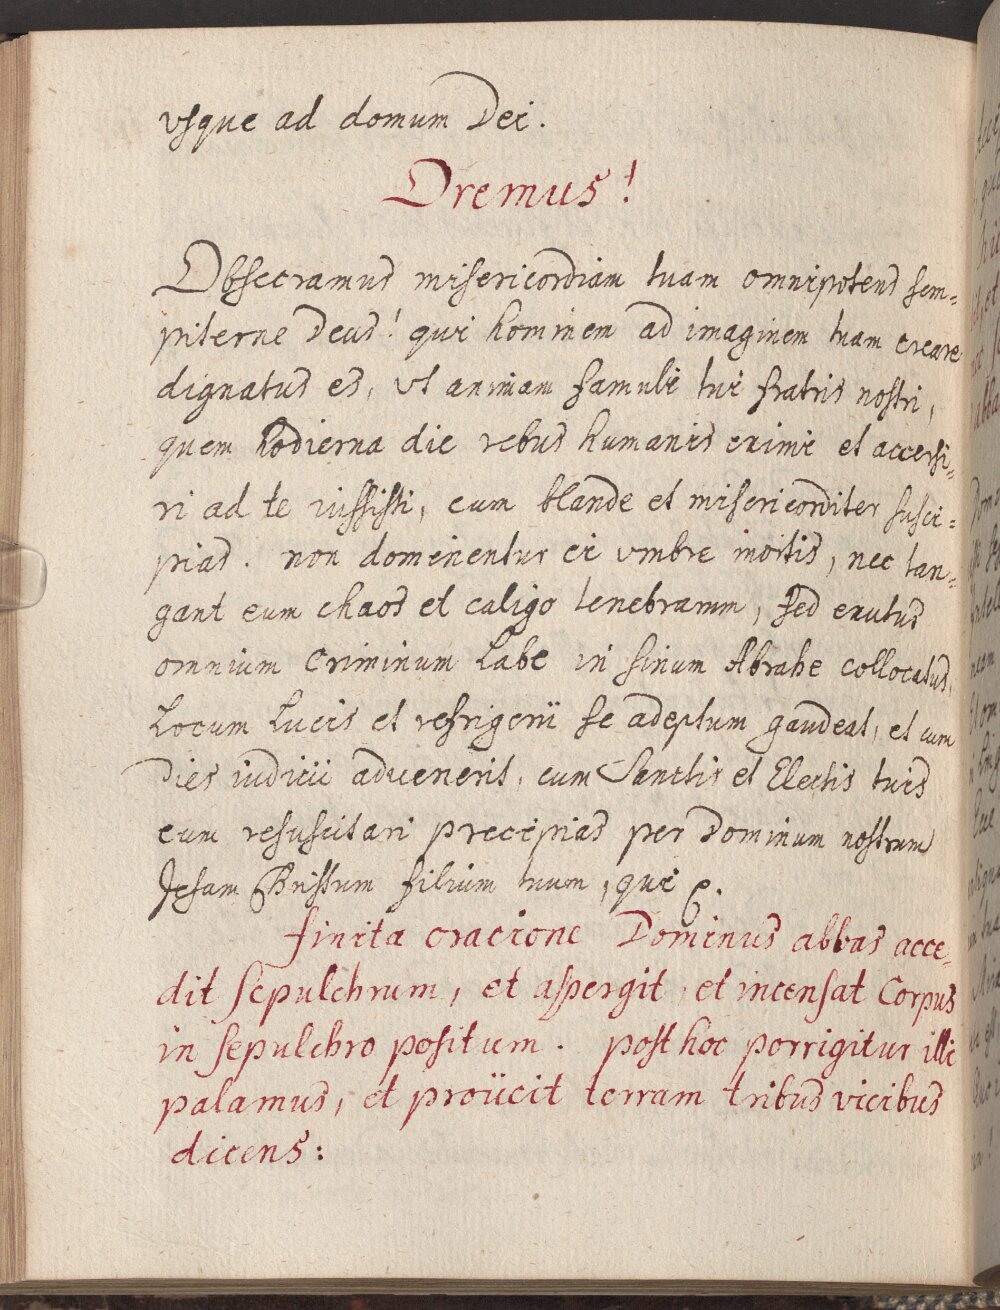 vsque ad domum Dei.
Oremus!
Obsecramus misericordiam tuam omnipotens sem=
piterne Deus! qui hominem ad imaginem tuam creare
dignatus es, vt animam famuli tui fratris nostri,
quem hodierna die rebus humanis eximi et accersi=
ri ad te iussisti, eum blande et misericorditer susci=
pias. non dominentur ei vmbre mortis, nec tan=
gant eum chaos et caligo tenebrarum, sed exutus
omnium criminum labe in sinum Abrahe collocatus,
locum lucis et refrigerii se adeptum gaudeat, et cum
dies iudicii aduenerit, cum Sanctis et Electis tuis
eum resuscitari precipias per Dominum nostrum
Jesum Christum filium tuum, qui
finita oracione Dominus abbas acce=
dit sepulchrum, et aspergit, et incensat Corpus
in sepulchro positum. post hoc porrigitur illi
palamus, et proiicit terram tribus vicibus
dicens: